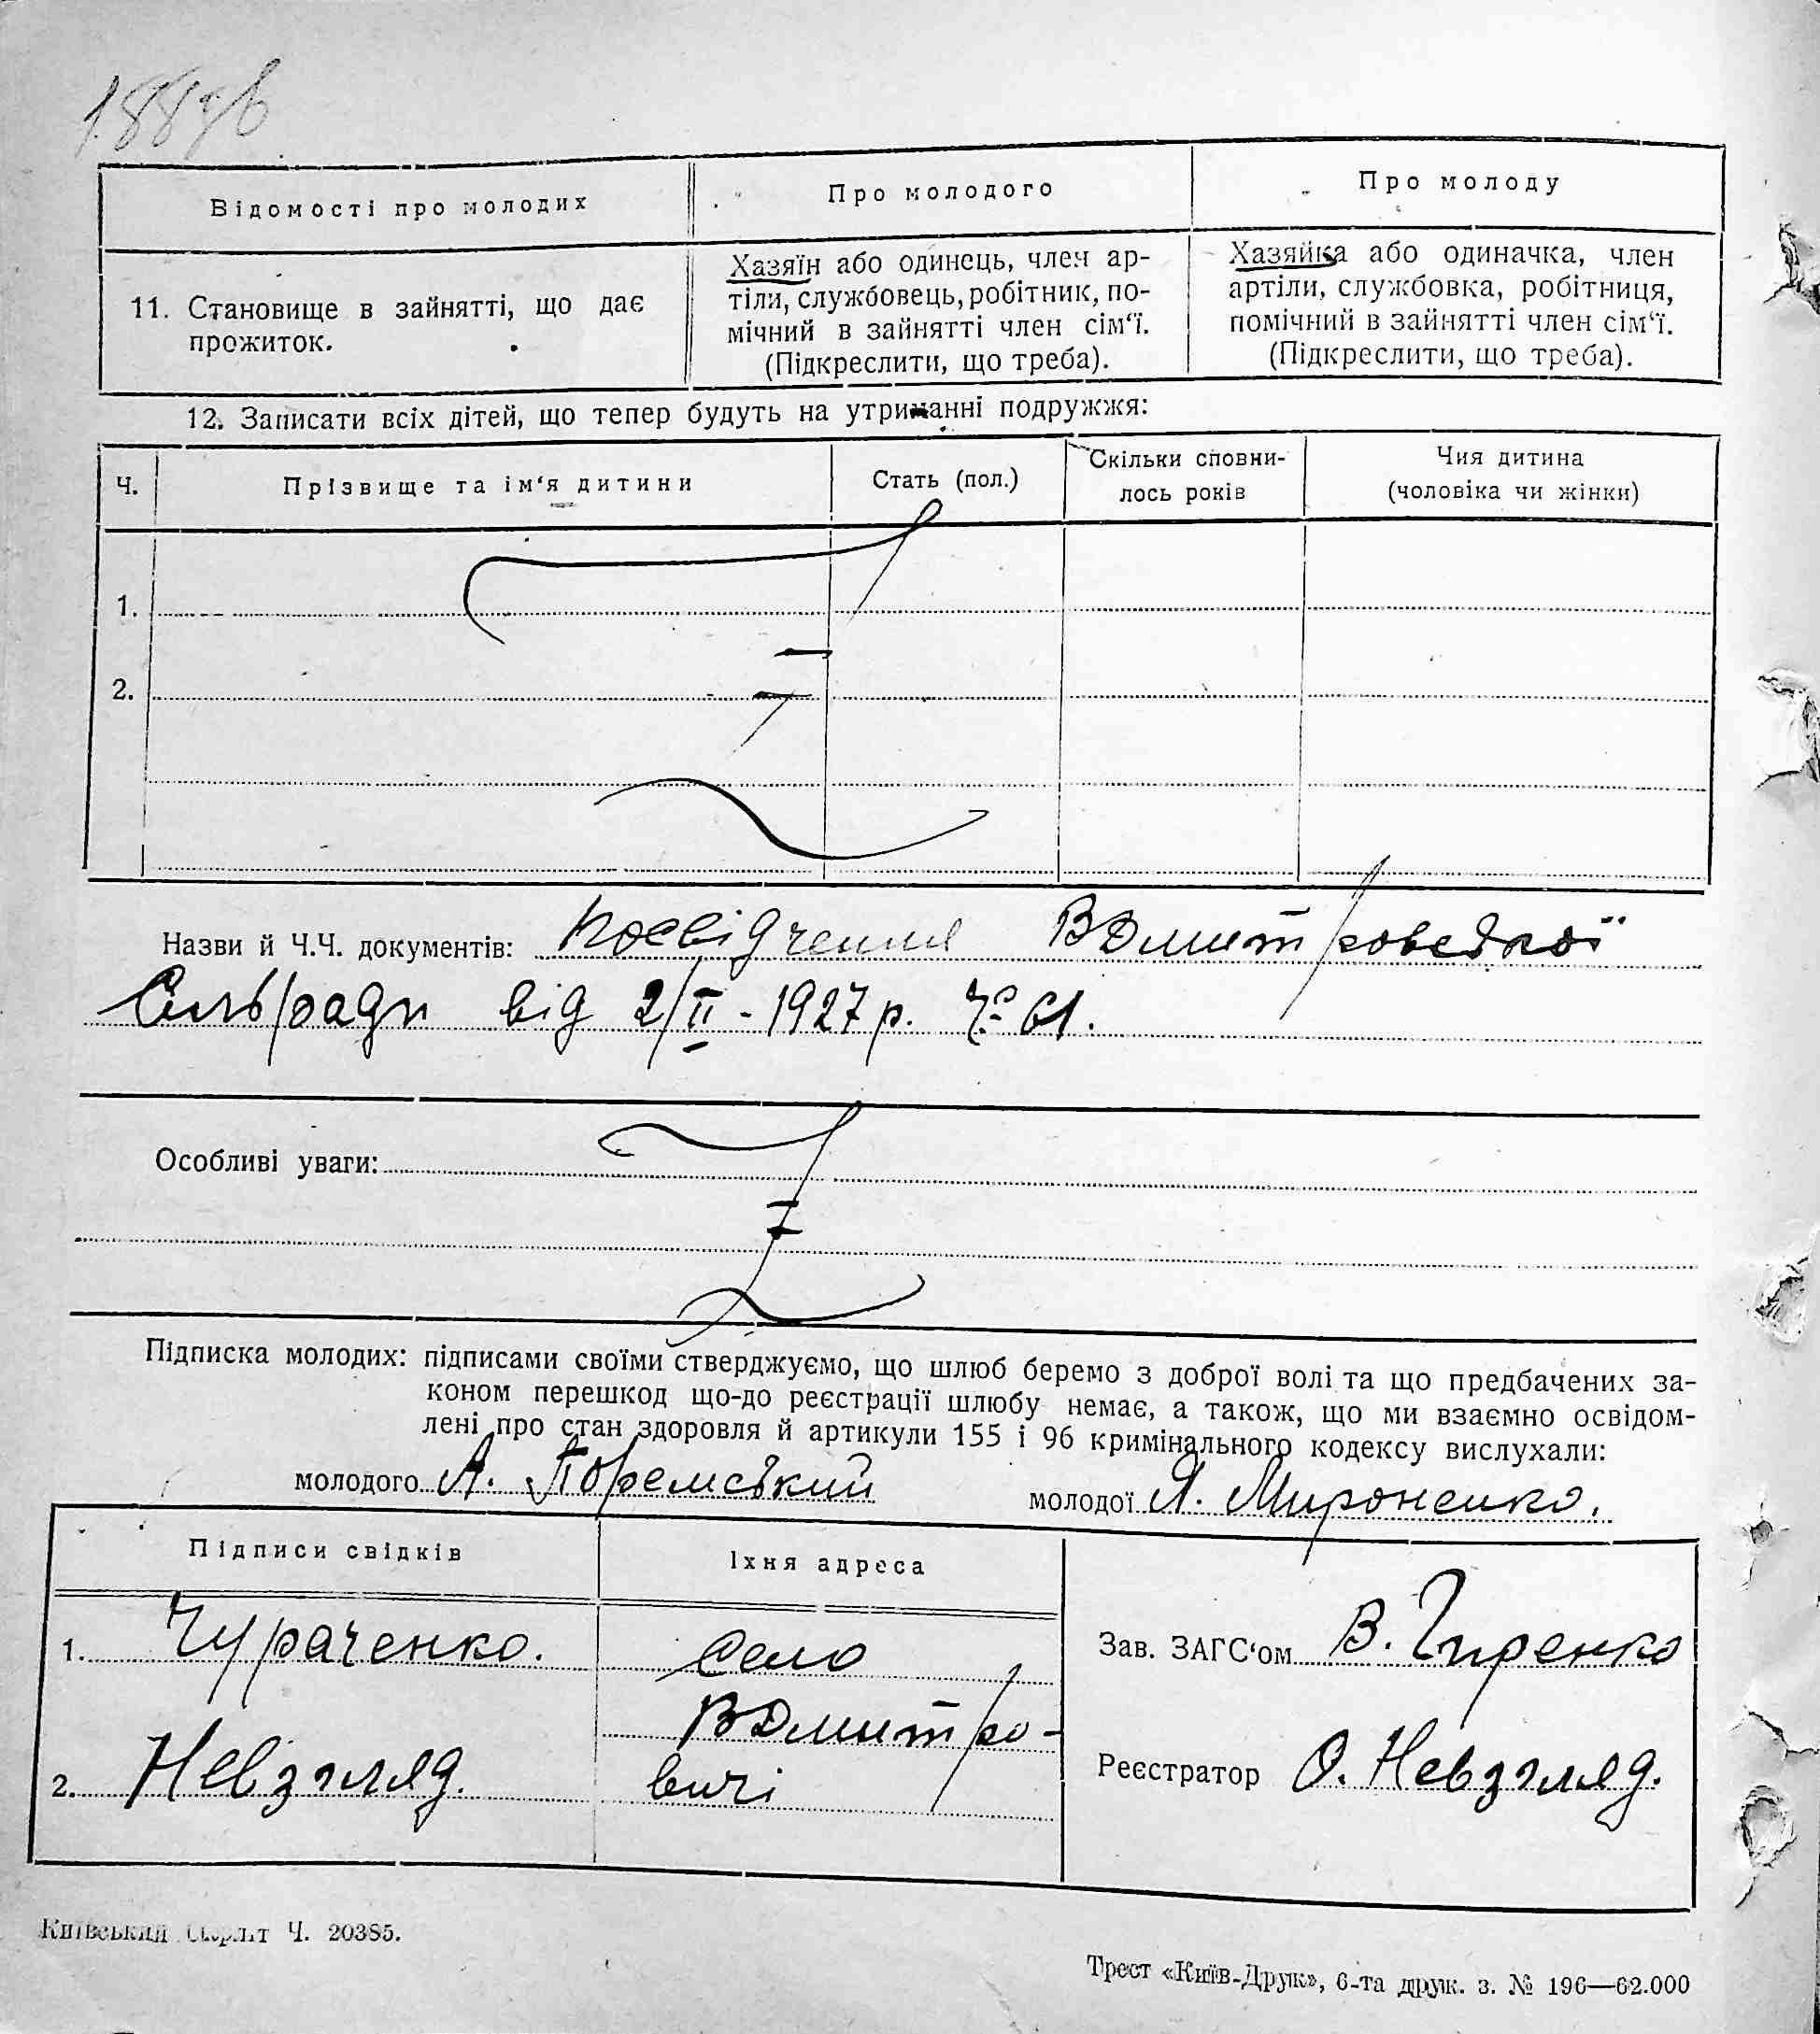 188зв
Відомості про молодих
Про молодого
Про молоду
11. Становище в зайнятті, що дає
прожиток.
Хазяїн або одинець, член ар-
тіли, службовець, робітник, по-
мічний в зайнятті член сім‘ї.
(Підкреслити, що треба).
Хазяйка або одиначка, член
артіли, службовка, робітниця,
помічний в зайнятті член сім‘ї.
(Підкреслити, що треба).
12. Записати всіх дітей, що тепер будуть на утриманні подружжя:
Ч.
Прізвище та ім‘я дитини
Стать (пол.)
Скільки сповни-
лось років
Чия дитина
(чоловіка чи жінки)
1.
2.
Назви й Ч.Ч. документів: Посвідчення ВДмитровської
Сельради від 2/II - 1927 р. Ч 61.
Особливі уваги:
Підписка молодих: підписами своїми стверджуємо, що шлюб беремо з доброї волі та що предбачених за-
коном перешкод що-до реєстрації шлюбу немає, а також, що ми взаємно освідом-
лені про стан здоровля й артикули 155 і 96 кримінального кодексу вислухали:
молодого А. Поремський молодої Я. Мироненко.
Підписи свідків
Їхня адреса
1. Чураченко.
Село
ВДмитро-
вичі
2. Невзгляд.
Зав. ЗАГС‘ом В. Гиренко
Реєстратор О. Невзгляд.
Київський Ч. 20385.
Трест «Київ-Друк», 6-та друк. з. № 196—62.000